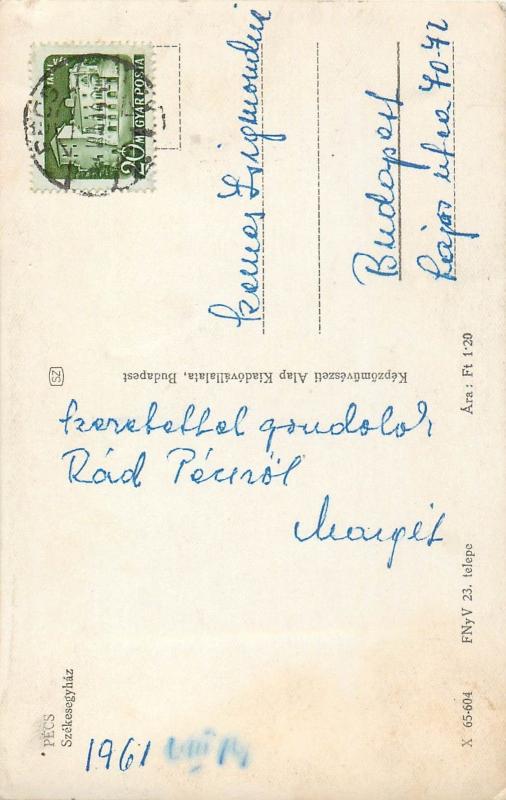 20 MAGYAR POSTA
PÉCS
Szemes Zsigmondné
Budapest
Lajos utca 70-72
Képzőművészeti Alap Kiadóvállalata, Budapest
Szeretettel gondolok
Rád Pécsről
Margit
PÉCS
Székesegyház
1961 VIII 14
X 65-604
FNyV 23. telepe
Ára: Ft 1·20